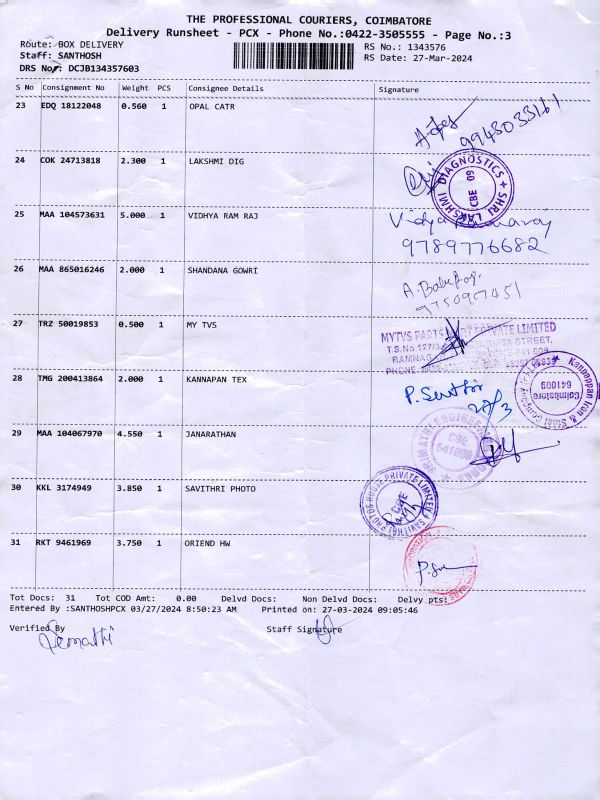 THE PROFESSIONAL COURIERS, COIMBATORE
Delivery Runsheet - PCX - Phone No.:0422-3505555 - Page No.:3
Route: BOX DELIVERY
RS No.: 1343576
Staff: SANTHOSH
RS Date: 27-Mar-2024
DRS No: DCJB134357603
S No Consignment No Weight PCS Consignee Details Signature
23 EDQ 18122048 0.560 1 OPAL CATR
9948033161
24 COK 24713818 2.300 1 LAKSHMI DIG
SHRI LAKSHMI DIAGNOSTICS
CBE 09
25 MAA 104573631 5.000 1 VIDHYA RAM RAJ
Vidya
9789776682
26 MAA 865016246 2.000 1 SHANDANA GOWRI
A. Babu
9750907451
27 TRZ 50019853 0.500 1 MY TVS
MYTVS PARTS PRIVATE LIMITED
T.S.No 127/3 STREET,
RAMNAG 641 009
PHONE
28 TMG 200413864 2.000 1 KANNAPAN TEX
P. Senthil
27/3
Kannappan Iron & Steel Company
Coimbatore
641009
29 MAA 104067970 4.550 1 JANARATHAN
SHIMATHI ENGINEERING
CBE
641009
30 KKL 3174949 3.850 1 SAVITHRI PHOTO
SAVITHRI PHOTOS HOUSE PRIVATE LIMITED
CBE
31 RKT 9461969 3.750 1 ORIEND HW
Tot Docs: 31 Tot COD Amt: 0.00 Delvd Docs: Non Delvd Docs: Delvy pts:
Entered By :SANTHOSHPCX 03/27/2024 8:50:23 AM Printed on: 27-03-2024 09:05:46
Verified By
Staff Signature